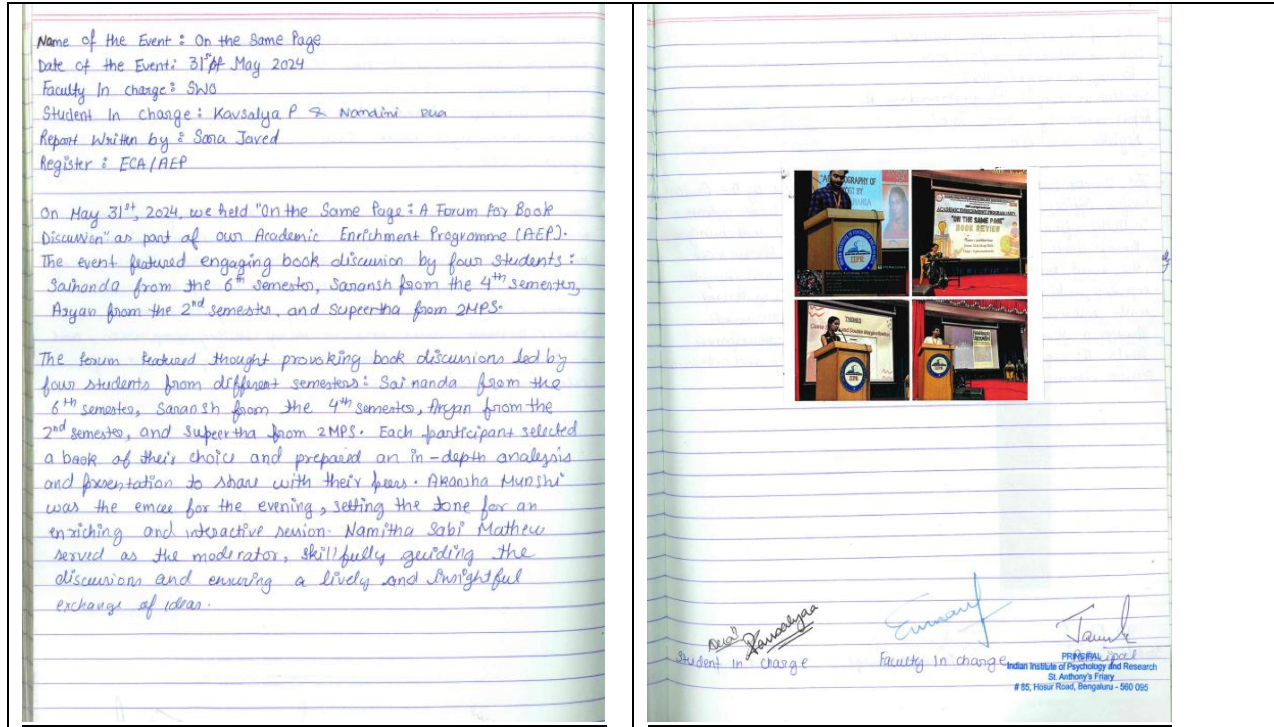 Name of the Event : On the Same Page
Date of the Event: 31st May 2024
Faculty In charge : SWO
Student In charge : Kavsalya P & Nandini Dua
Report Written by : Sara Javed
Register : ECA/AEP
On May 31st, 2024, we held "On the Same Page : A Forum For Book
Discussion" as part of our Academic Enrichment Programme (AEP).
The event featured engaging book discussion by four students :
Sainanda from the 6th semester, Saransh from the 4th semester,
Aryan from the 2nd semester, and Supeertha from 2MPS.
The forum featured thought provoking book discussions led by
four students from different semesters : Sainanda from the
6th semester, Saransh from the 4th semester, Aryan from the
2nd semester, and Supeertha from 2MPS. Each participant selected
a book of their choice and prepared an in-depth analysis
and presentation to share with their peers. Akansha Munshi
was the emcee for the evening, setting the tone for an
enriching and interactive session. Namitha Sabi Mathew
served as the moderator, skillfully guiding the
discussions and ensuring a lively and insightful
exchange of ideas.
"ON THE SAME PAGE"
BOOK REVIEW
THEMES
and Double Marginalization
IIPR
IIPR
Dua
Kavsalyaa
Student In charge
Faculty In charge
Principal
PRINCIPAL
Indian Institute of Psychology and Research
St. Anthony's Friary
# 85, Hosur Road, Bengaluru - 560 095